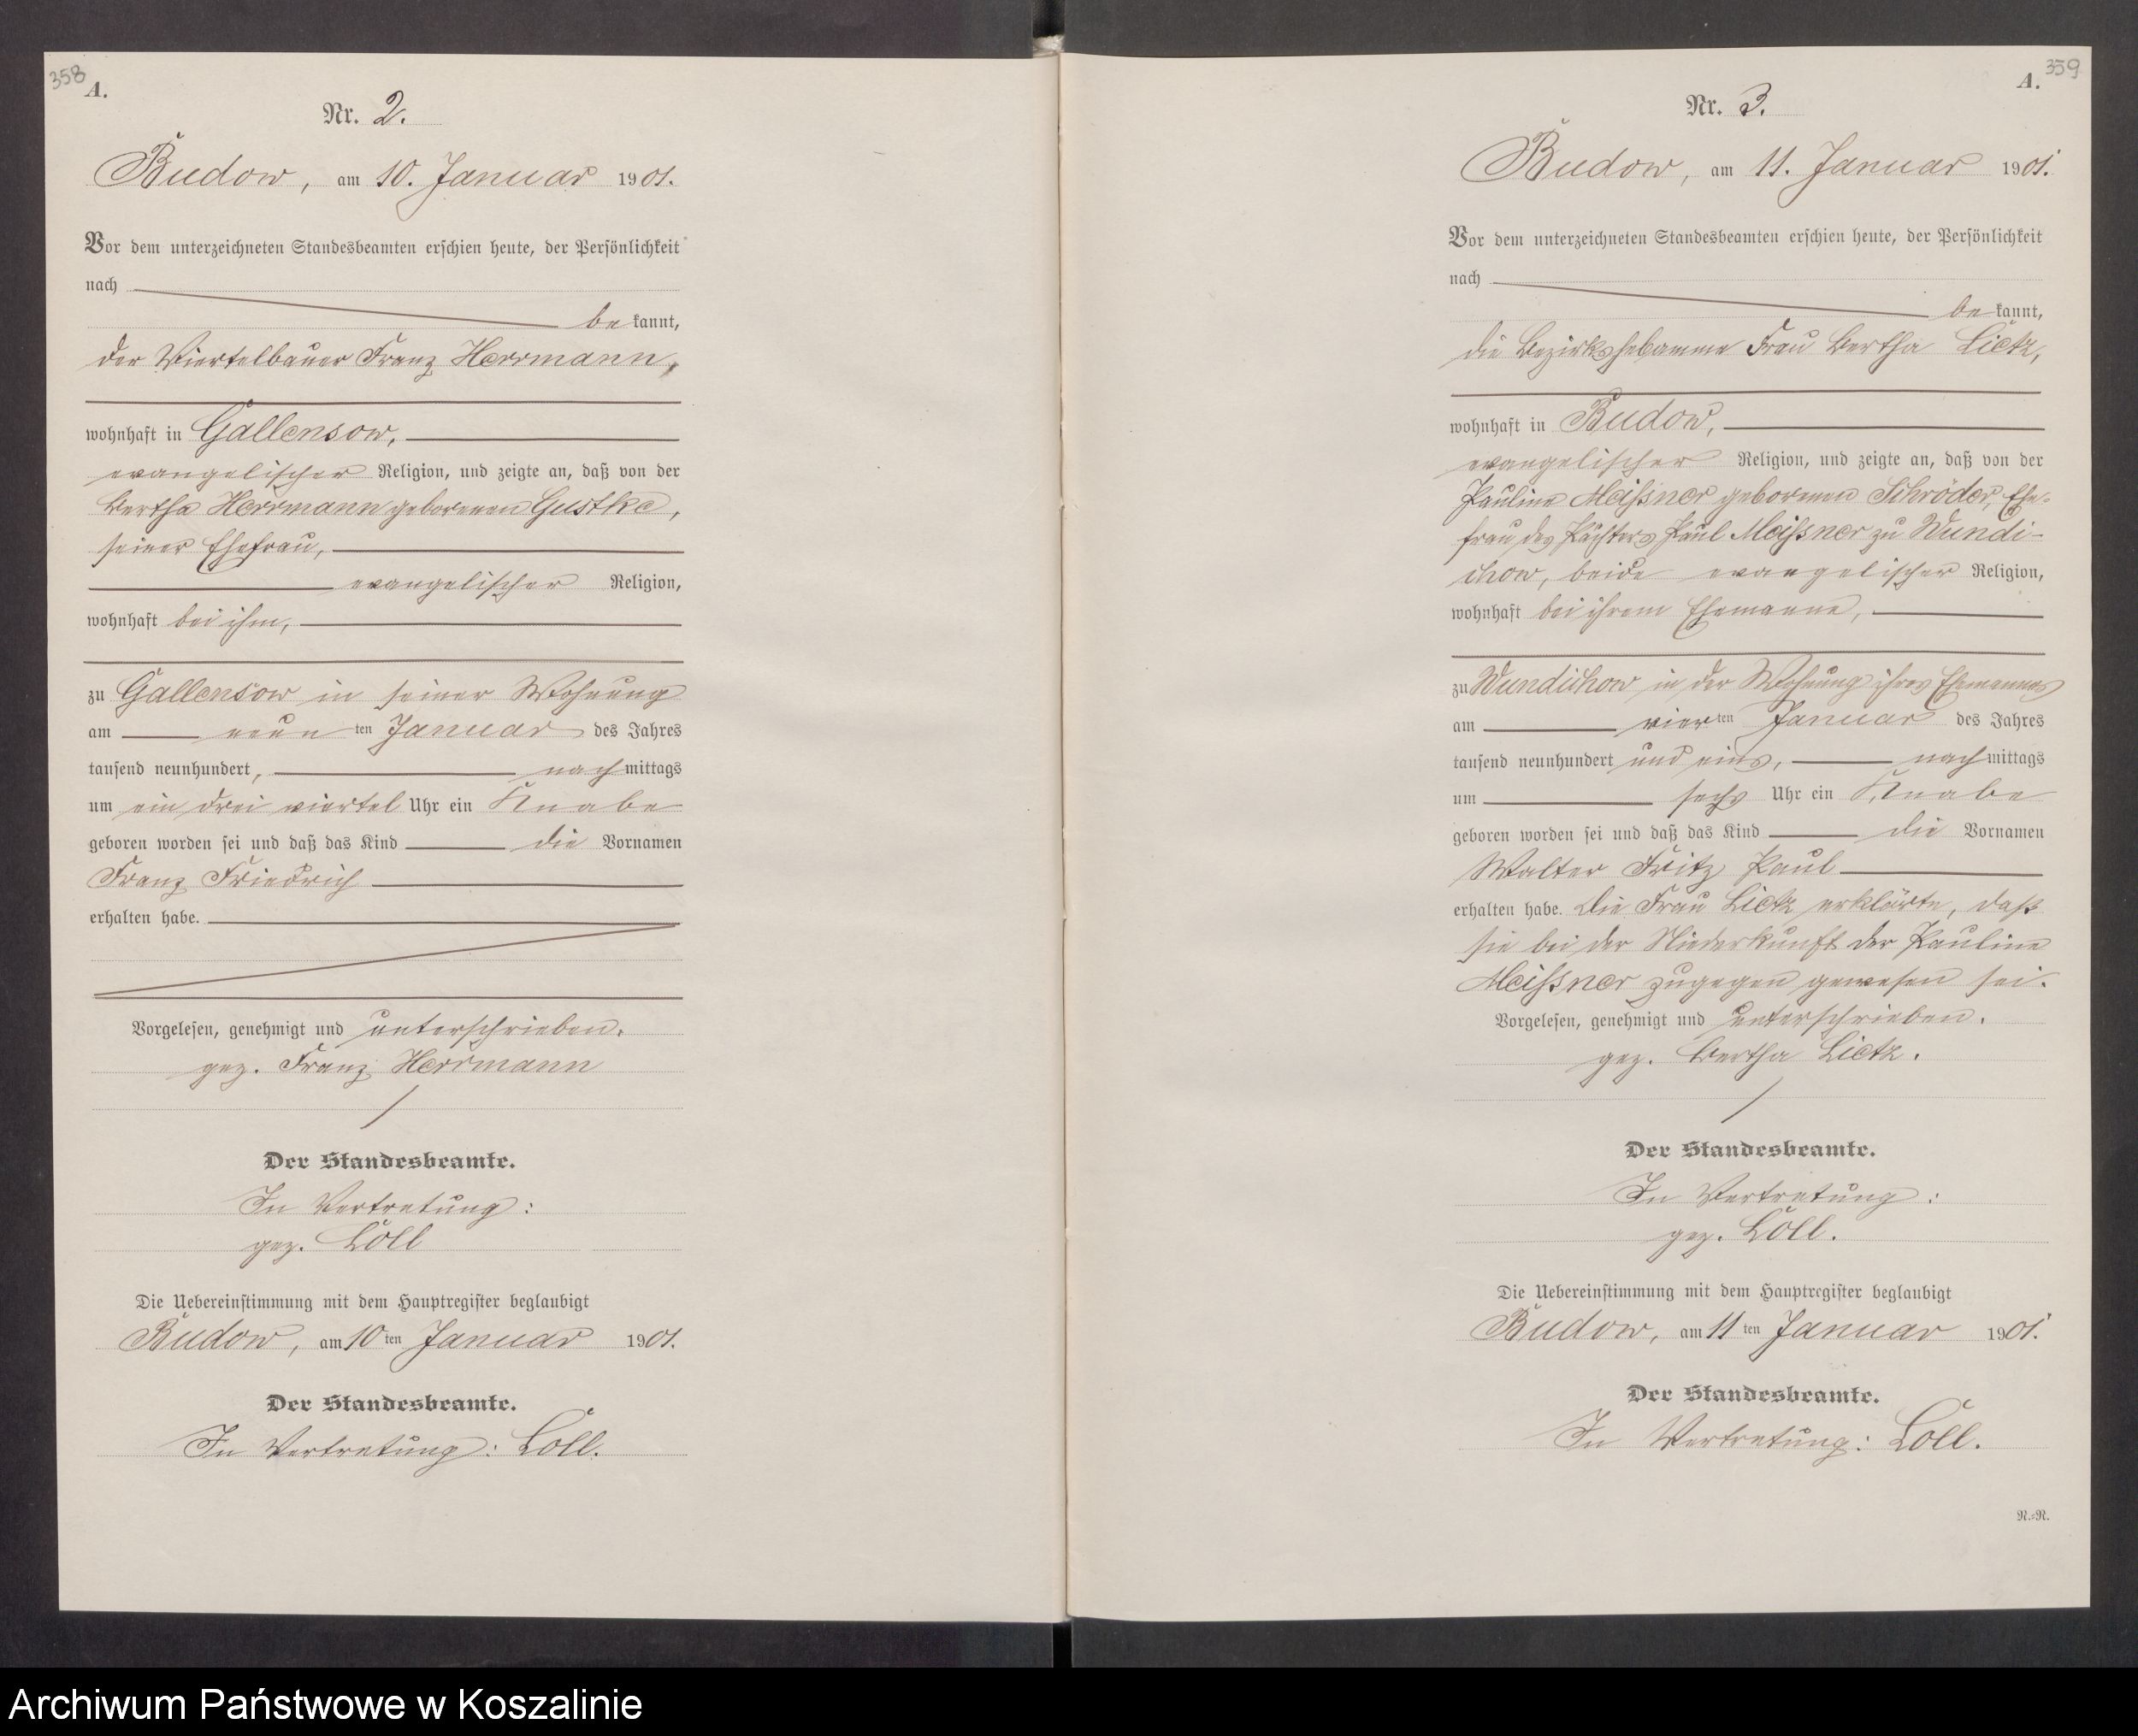 358
A.
Nr. 2.
Budow, am 10. Januar 1901.
Vor dem unterzeichneten Standesbeamten erschien heute, der Persönlichkeit
nach
be kannt,
der Viertelbauer Franz Herrmann,
wohnhaft in Gallensow,
evangelischer Religion, und zeigte an, daß von der
Bertha Herrmann geborenen Gustke,
seiner Ehefrau,
evangelischer Religion,
wohnhaft bei ihm,
zu Gallensow in seiner Wohnung
am neun ten Januar des Jahres
tausend neunhundert, nach mittags
um ein drei viertel Uhr ein Knabe
geboren worden sei und daß das Kind die Vornamen
Franz Friedrich
erhalten habe.
Vorgelesen, genehmigt und unterschrieben.
gez. Franz Herrmann
Der Standesbeamte.
In Vertretung:
gez. Löll
Die Uebereinstimmung mit dem Hauptregister beglaubigt
Budow, am 10 ten Januar 1901.
Der Standesbeamte.
In Vertretung: Löll.
359
A.
Nr. 3.
Budow, am 11. Januar 1901.
Vor dem unterzeichneten Standesbeamten erschien heute, der Persönlichkeit
nach
be kannt,
die Bezirkshebamme Frau Bertha Lietz,
wohnhaft in Budow,
evangelischer Religion, und zeigte an, daß von der
Pauline Meißner geborenen Schröder, Ehe-
frau des Pächters Paul Meißner zu Wundi-
chow, beide evangelischer Religion,
wohnhaft bei ihrem Ehemanne,
zu Wundichow in der Wohnung ihres Ehemannes
am vier ten Januar des Jahres
tausend neunhundert und eins, nach mittags
um sechs Uhr ein Knabe
geboren worden sei und daß das Kind die Vornamen
Walter Fritz Paul
erhalten habe. Die Frau Lietz erklärte, daß
sie bei der Niederkunft der Pauline
Meißner zugegen gewesen sei.
Vorgelesen, genehmigt und unterschrieben.
gez. Bertha Lietz.
Der Standesbeamte.
In Vertretung:
gez. Löll.
Die Uebereinstimmung mit dem Hauptregister beglaubigt
Budow, am 11 ten Januar 1901.
Der Standesbeamte.
In Vertretung: Löll.
N.=N.
Archiwum Państwowe w Koszalinie